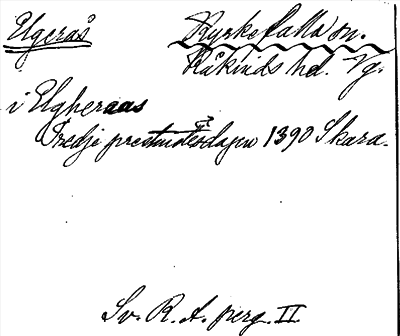 Elgerås Kyrkefalla sn.
Kåkinds hd. Vg.
i Elgheraas
Tredje prestmötesdagen 1390 Skara.
Sv. R. A. perg. II